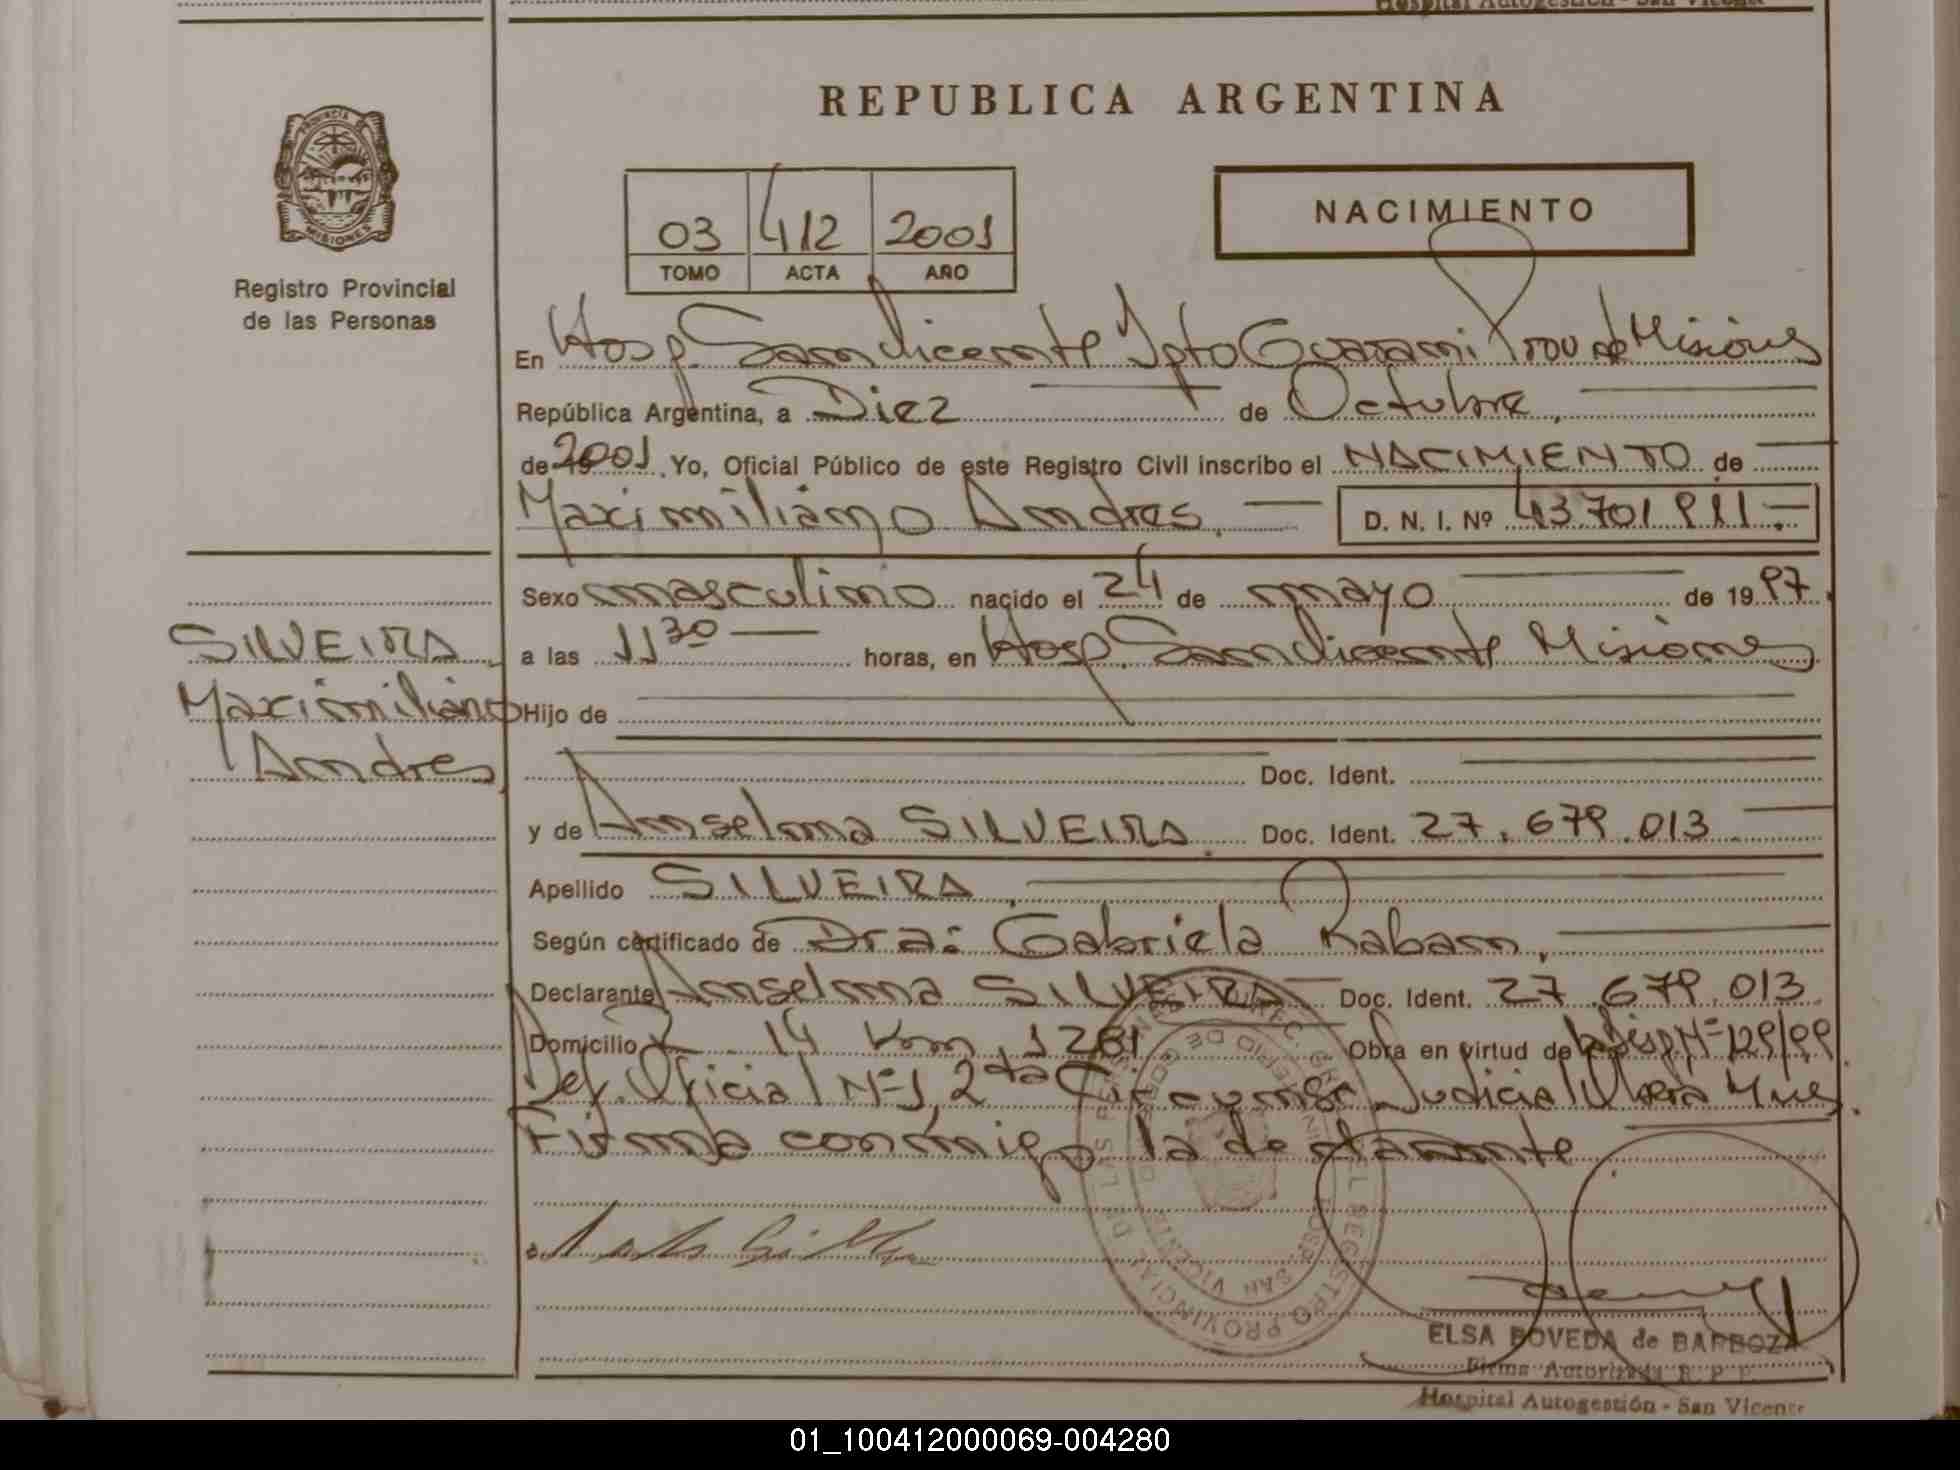 Hospital Autogestión - San Vicente
REPUBLICA ARGENTINA
PROVINCIA DE
MISIONES
Registro Provincial
de las Personas
03 412 2001
TOMO ACTA AÑO
NACIMIENTO
En Hosp. San Vicente Dpto Guarani Prov de Misiones
República Argentina, a Diez de Octubre
de 19 2001. Yo, Oficial Público de este Registro Civil inscribo el NACIMIENTO de
Maximiliano Andres. D. N. I. Nº 43.701.911.-
Sexo masculino nacido el 24 de mayo de 1997.
SILVEIRA
Maximiliano
Andres
a las 11 30 horas, en Hosp. San Vicente Misiones
Hijo de
Doc. Ident.
y de Anselma SILVEIRA. Doc. Ident. 27.679.013
Apellido SILVEIRA.
Según certificado de Dra: Gabriela Raban.
Declarante Anselma SILVEIRA Doc. Ident. 27.679.013
Domicilio R 14 Km 1281 Obra en virtud de Nº 129/99
Def. Oficial Nº 1, 2da Circunsc. Judicial Obera Mnes.
Firma conmigo la declarante
REGISTRO PROVINCIAL DE LAS PERSONAS
HOSP. SAN VICENTE
ELSA BOVEDA de BARBOZA
Firma Autorizada R. P. P.
Hospital Autogestión - San Vicente
01_100412000069-004280